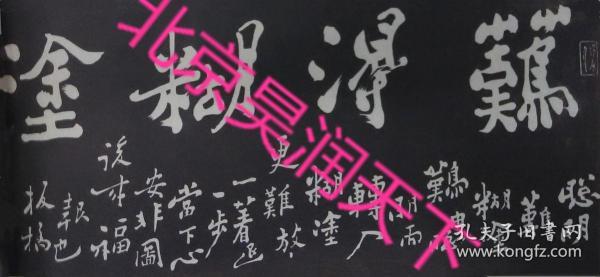 難得糊塗
聰明
難
糊塗
難由聰
明而
轉入
糊塗
更難放
一著退
一步
當下心
安非圖
後来福
報也
板橋
北京昊润天下
孔夫子旧书网
www.kongfz.com